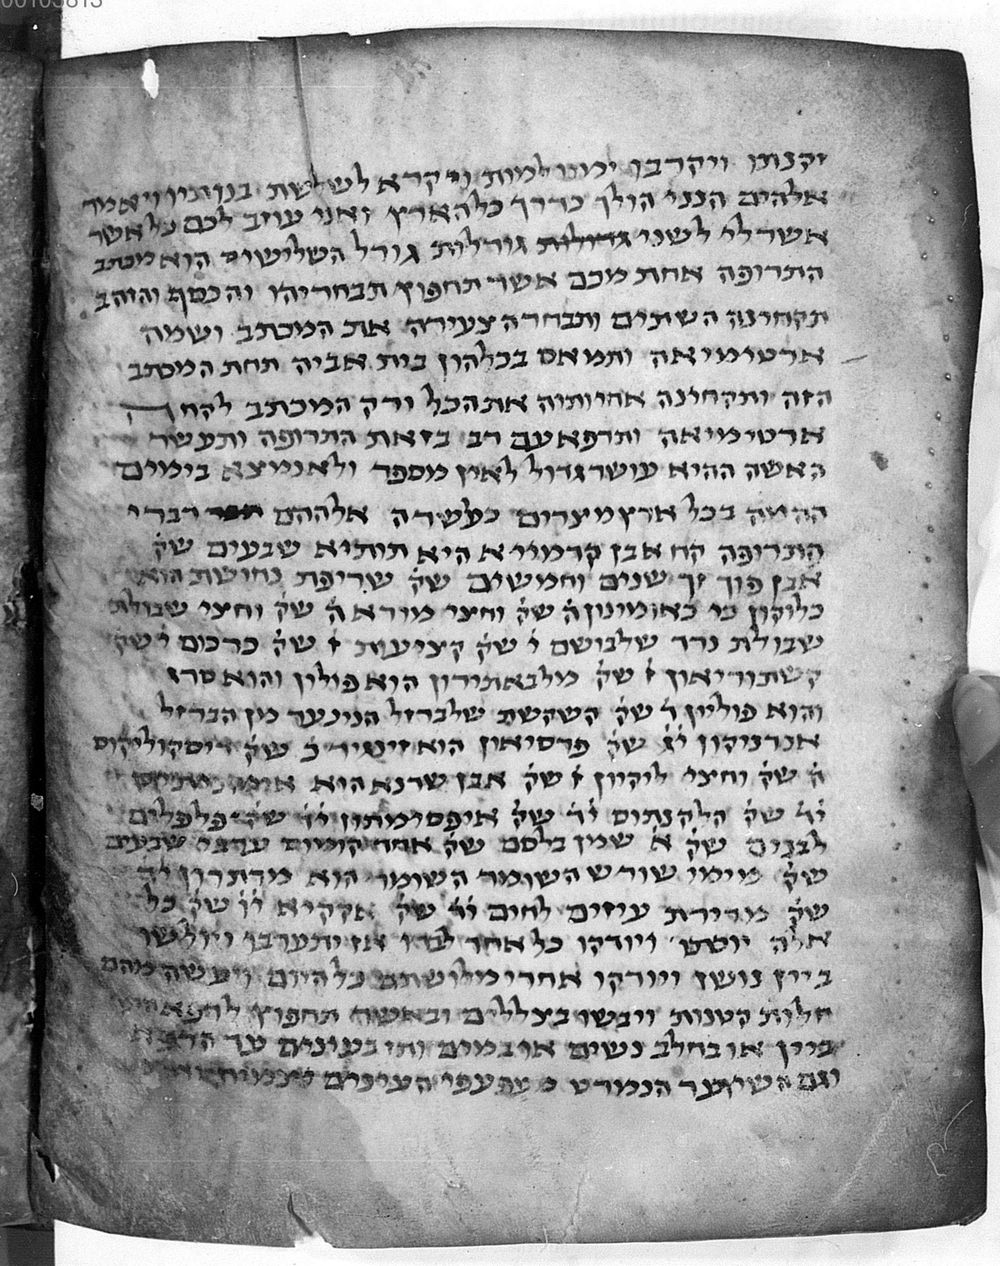 00103813
זקנתו ויקרבו ימיו למות ויקרא לשלשת בנותיו ויאמר
אלהים הנני הולך בדרך כל הארץ ואני עוזב לכם כל אשר
אשר לי לשני גורלות גורל השלישית הוא מכתב
התרופה אחת מכם אשר תחפוץ תבחריהו והכסף והזהב
תקחינה השתים ותבחר הצעירה את המכתב ושמה
ארטימיאה ותמאס בכל הון בית אביה תחת המכתב
הזה ותקחינה אחיותיה את הכל ורק המכתב לקחה
ארטימיאה ותרפא עם רב בזאת התרופה ותעשר
האשה ההיא עושר גדול לאין מספר ולא נמצא בימים
ההמה בכל ארץ מצרים כעשרה אלההם דברי
התרופה קח אבן קדמייא היא תותיא שבעים שק
אבן פוך זך שנים וחמשים שק שריפת נחושת הוא
שק וחצי מירא ה שק וחצי שבולת
שבולת נרד שלבושם י שק קציעות שק כרכום י שק
שק מלבאתירון הוא פולין והוא סרז
והוא פוליון ך שק השקשת שלברזל הנינער מן הברזל
אנדניקון שק פרסיאון הוא שק
ה שק וחצי ליקיון שק אבן שרנא היא
שק שק פלפלים
לבנים שק א שמן בלסם שק אחד ערבי שבעים
שק מימי שורש השומר השומר הוא
שק מרירת עיזים לחים שק אקקיא שק כל
אלה ויודקו כל אחד לבדו אז יתערבו ויולשו
ביין נושן ויודקו אחרי מלושתם כל היום ויעשה מהם
חלות קטנות ויבשו בצללים ובאשר תחפוץ
ביין או בחלב נשים או במים ותן בעינים עד
וגם השיער הנמרט מעפעפי העינים